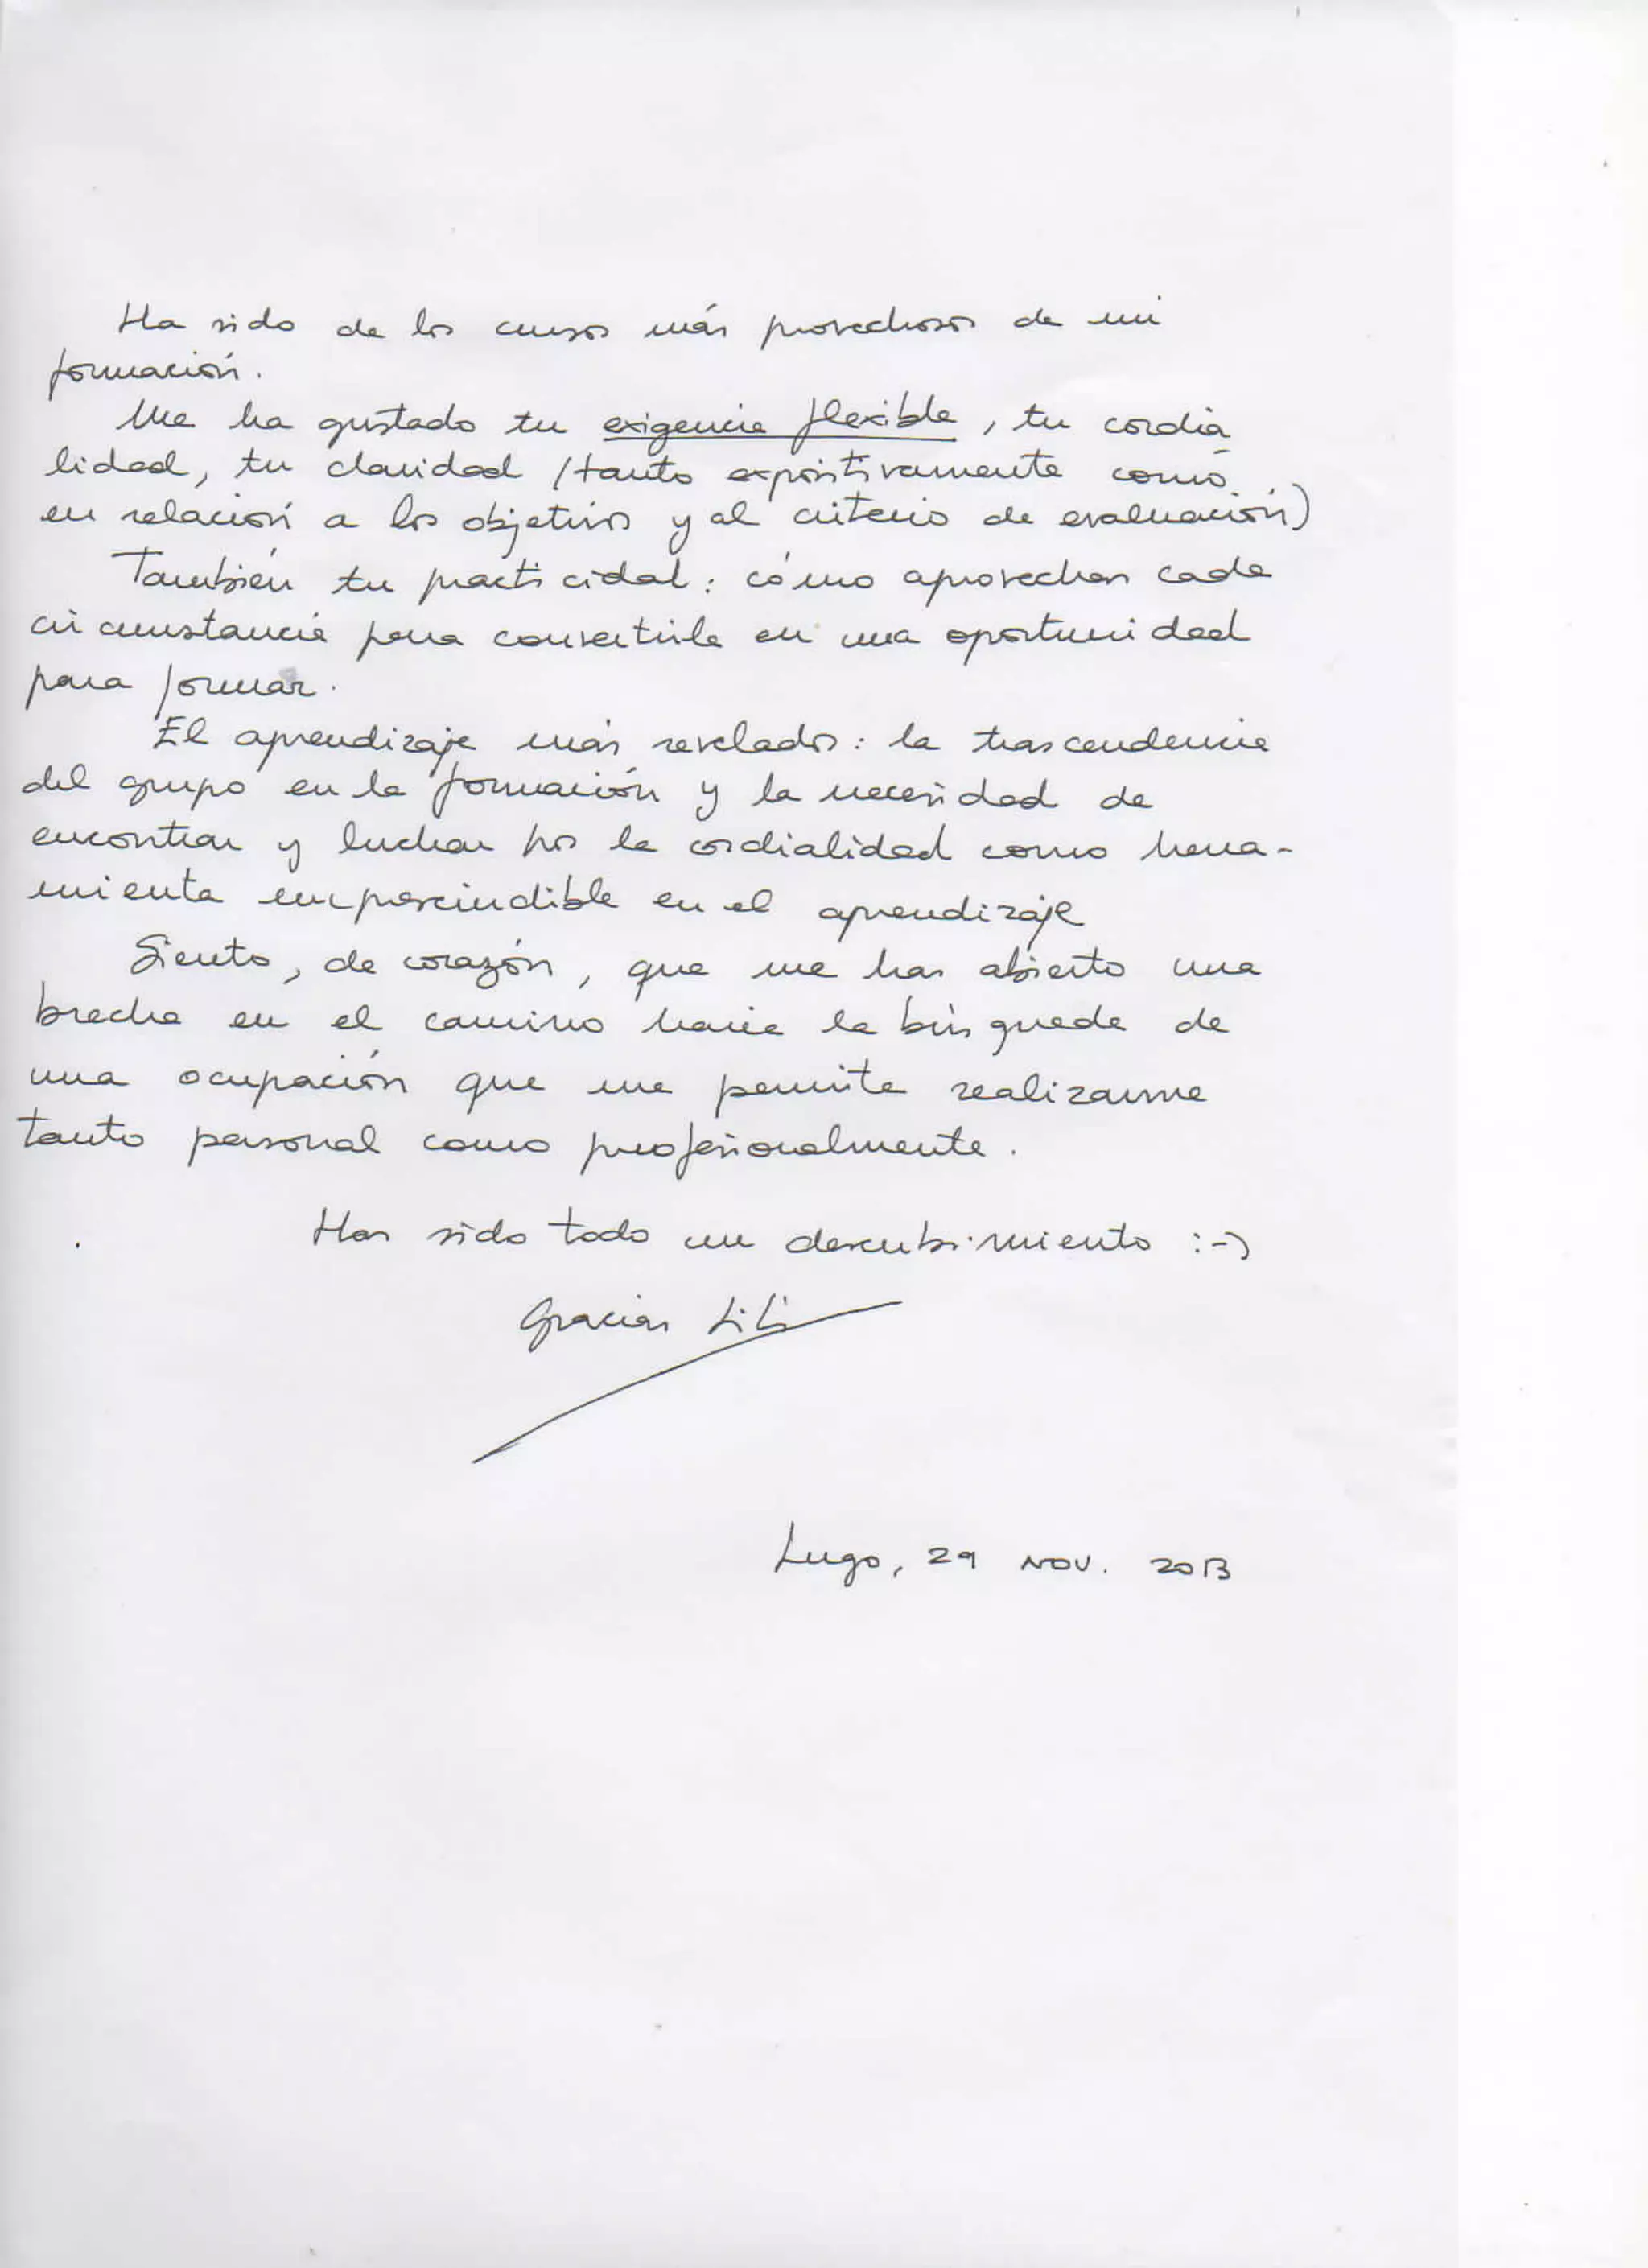 Ha sido de los cursos más provechosos de mi
formación.
Me ha gustado tu exigencia flexible, tu cordia
lidad, tu claridad (tanto expositivamente como
en relación a los objetivos y al criterio de evaluación)
También tu practicidad: cómo aprovechar cada
circunstancia para convertirla en una oportunidad
para formar.
El aprendizaje más revelador: la trascendencia
del grupo en la formación y la necesidad de
encontrar y luchar por la cordialidad como herra-
mienta imprescindible en el aprendizaje
Siento, de corazón, que me has abierto una
brecha en el camino hacia la búsqueda de
una ocupación que me permita realizarme
tanto personal como profesionalmente.
Has sido todo un descubrimiento :-)
Gracias Lili
Lugo, 29 NOV. 2013